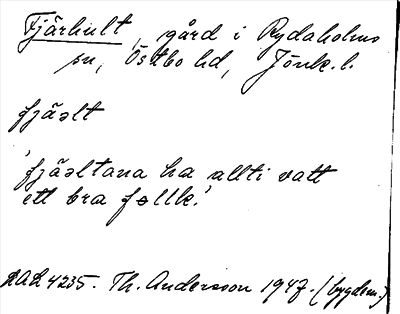 Fjärhult, gård i Rydaholms
sn, Östbo hd, Jönk. l.
fjäəlt
'fjäəltana ha allti vatt
ett bra fəllk.'
DAL 4235. Th. Andersson 1947. (bygdem.)